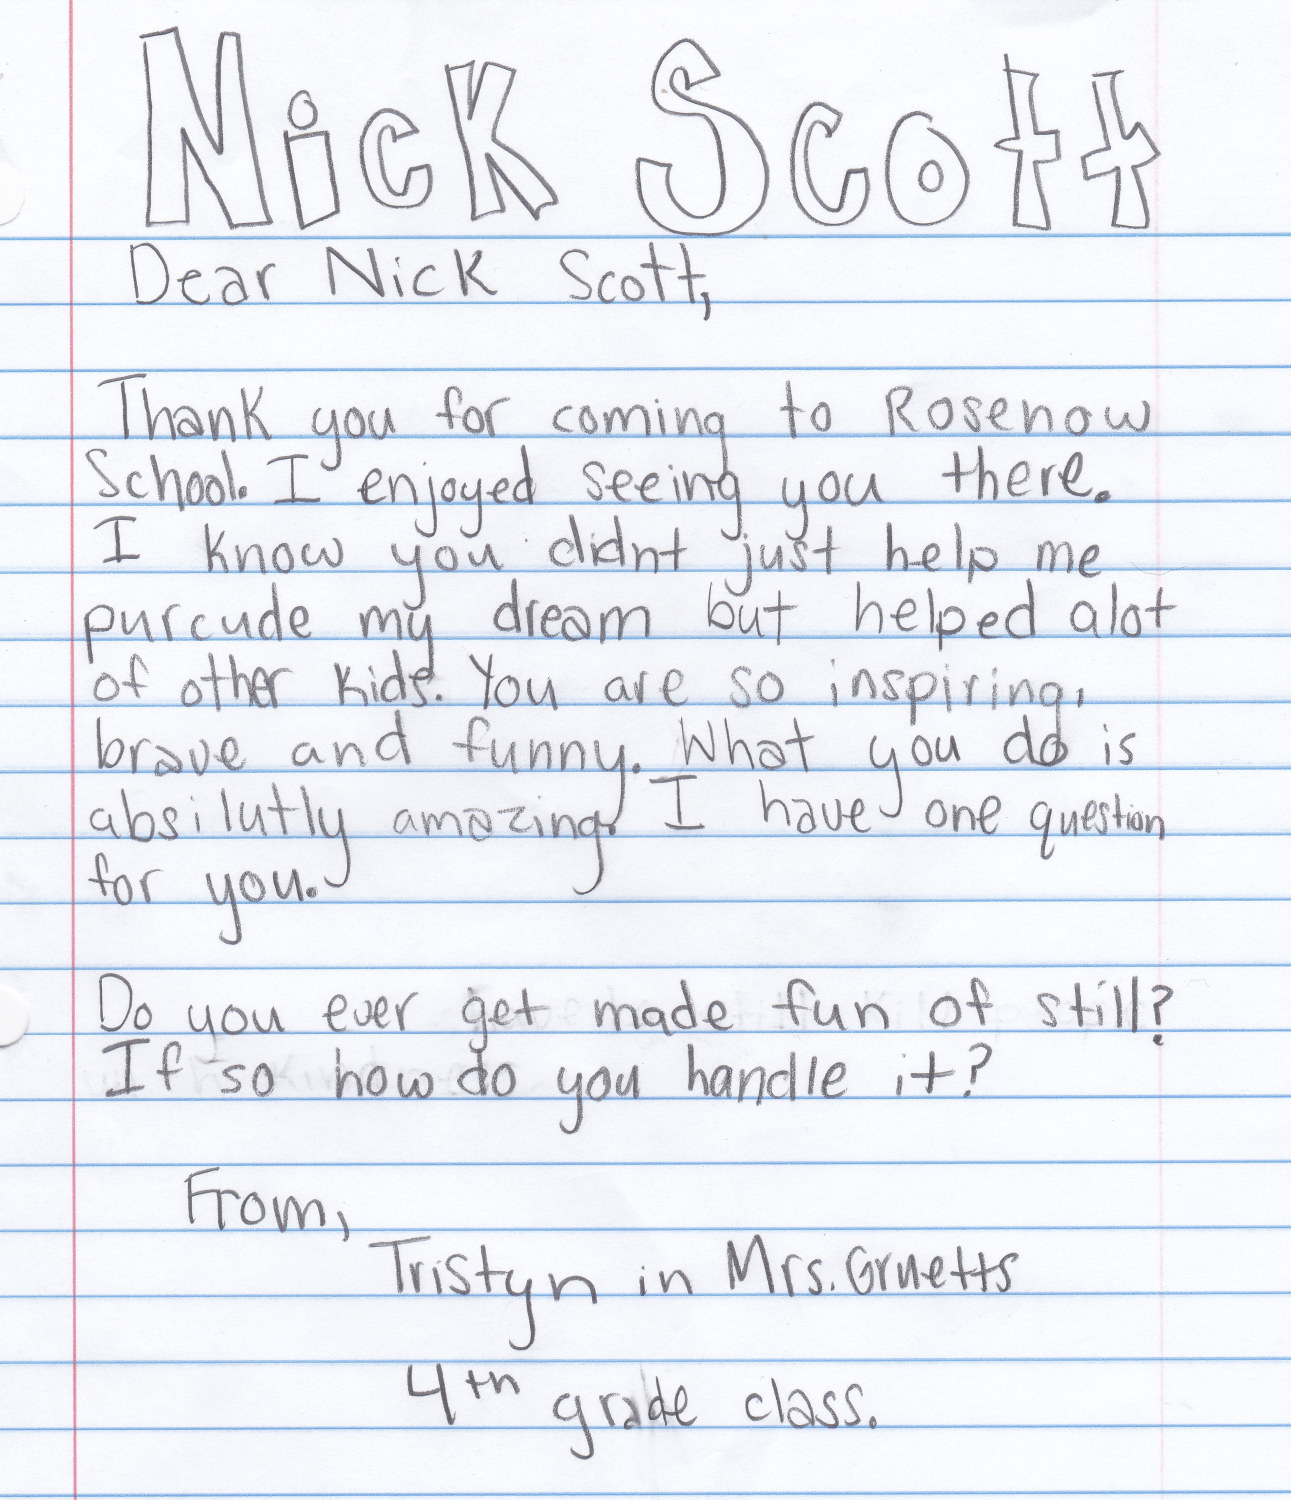 Nick Scott
Dear Nick Scott,
Thank you for coming to Rosenow
School. I enjoyed seeing you there.
I know you didnt just help me
purcude my dream but helped alot
of other kids. You are so inspiring,
brave and funny. What you do is
absilutly amazing. I have one question
for you.
Do you ever get made fun of still?
If so how do you handle it?
From,
Tristyn in Mrs. Gruetts
4th grade class.